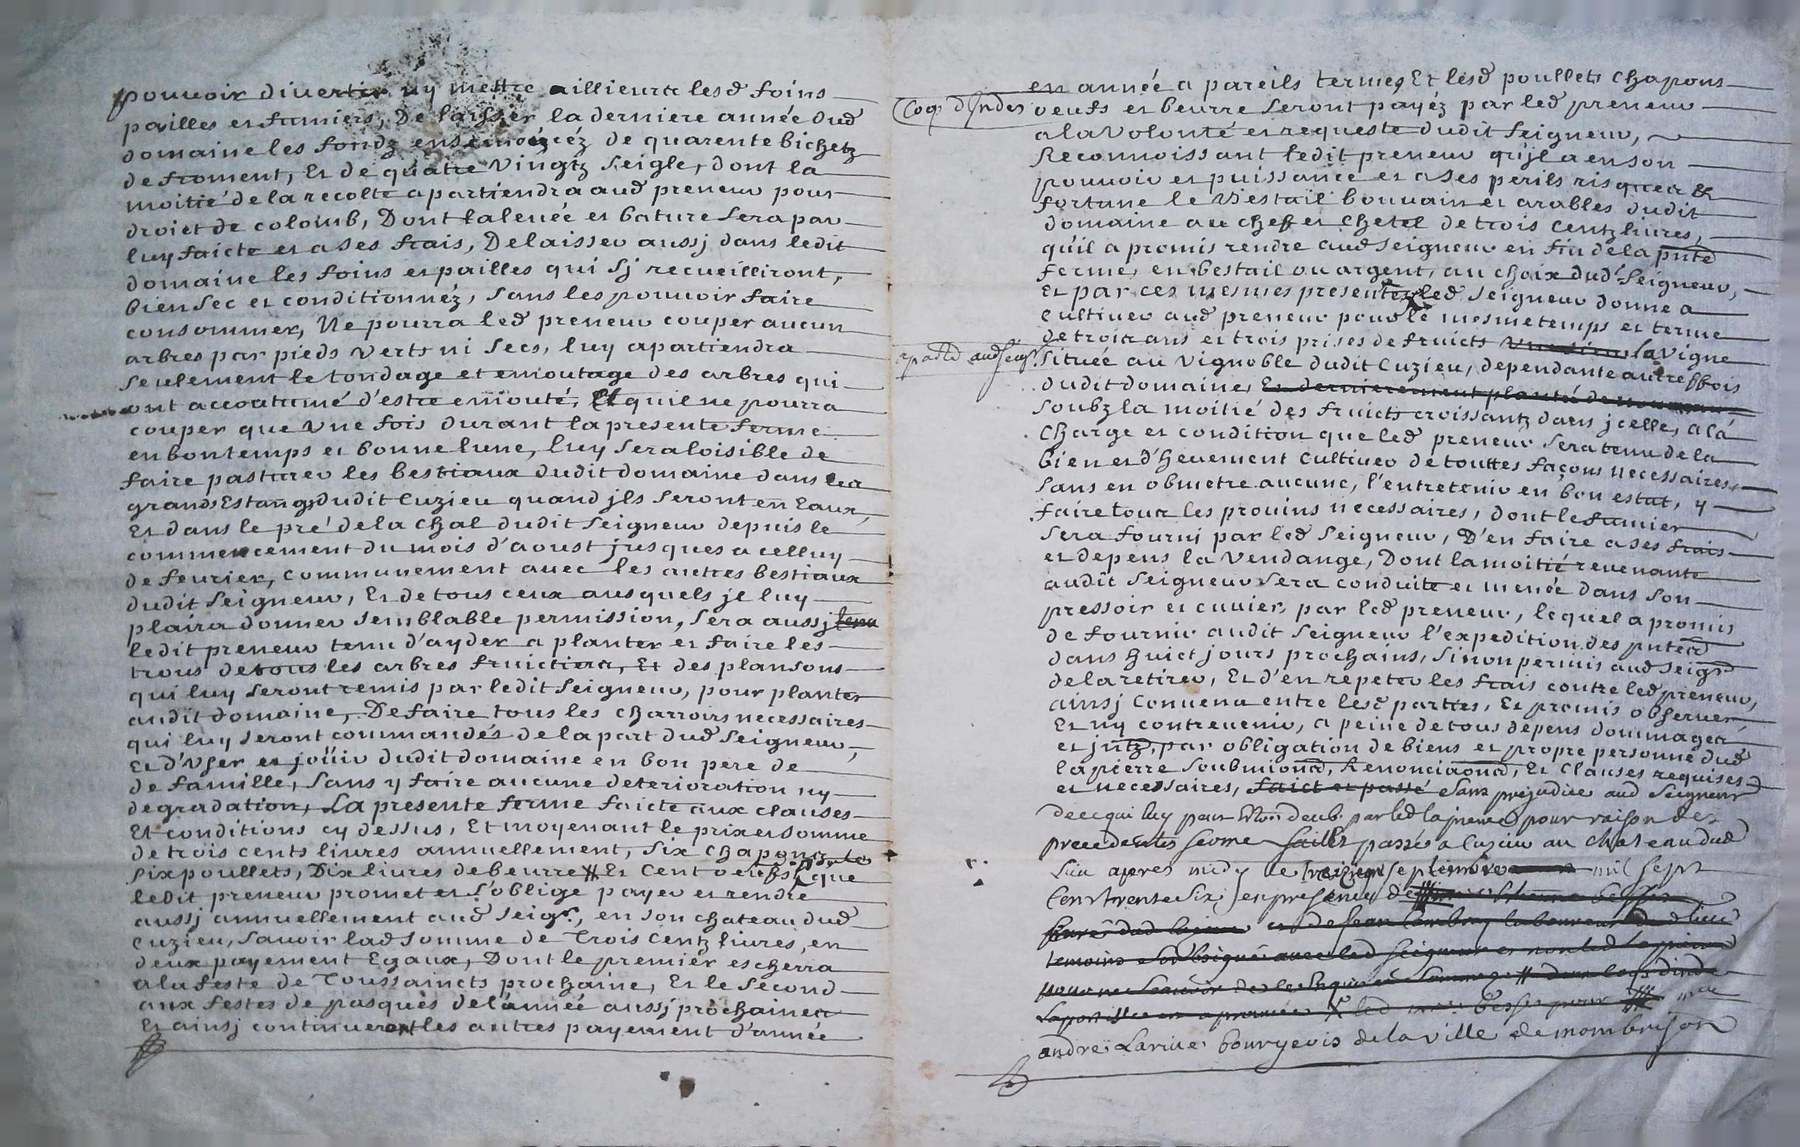 pouvoir divertir ny mettre aillieurs lesd foins
pailles et fumiers, De laisser la derniere année dud
domaine les fondz ensemencéz de quarente bichetz
de froment, Et de quatre vingtz seigle, dont la
moitié de la recolte apartiendra aud preneur pour
droict de colomb, Dont la levée et bature sera par
luy faicte et a ses frais, De laisser aussj dans ledit
domaine les foins et pailles qui sj recueilliront,
bien sec et conditionnéz, sans les pouvoir faire
consommer, Ne pourra led preneur couper aucun
arbres par pieds verts ni secs, luy apartiendra
seulement le tondage et emoutage des arbres qui
ont accoutumé d'estre emouté, Et qu'il ne pourra
couper que une fois durant la presente ferme
en bon temps et bonne lune, luy sera loisible de
faire pasturer les bestiaux dudit domaine dans les
grands Estangs dudit Cuzieu quand jls seront en Eaux,
Et dans le pré de la Chal dudit Seigneur depuis le
commencement du mois d'aoust jusques a celluy
de fevrier, communement avec les autres bestiaux
dudit Seigneur, Et de tous ceux ausquels jl luy
plaira donner semblable permission, sera aussj tenu
ledit preneur tenu d'ayder a planter et faire les
trous de tous les arbres fruictiers, Et des plansons
qui luy seront remis par ledit Seigneur, pour planter
audit domaine, De faire tous les charroirs necessaires
qui luy seront commandés de la part dud Seigneur,
Et d'User et joüir dudit domaine en bon pere de
de famille, sans y faire aucune deterioration ny
degradation, La presente ferme faicte aux clauses
Et conditions cy dessus, Et moyenant le prix et somme
de trois cents livres annuellement, six chapons
six poullets, Dix livres de beurre # Et Cent oeufs que
ledit preneur promet et s'oblige payer et rendre
aussj annuellement aud Seigr, en son chateau dud
Cuzieu, savoir lad somme de Trois Centz livres, en
deux payement Egaux, Dont le premier escherra
a la feste de Toussaincts prochaine, Et le second
aux festes de pasques de l'année aussj prochaines
Et ainsj continueront les autres payement d'année
en année a pareils termes Et lesd poullets chapons
Coqs d'Indes
oeufs et beurre seront payéz par led preneur
a la volonté et requeste dudit Seigneur,
Reconnoissant ledit preneur qu'jl a en son
pouvoir et puissance et a ses perils risques &
fortune le Bestail bouvain et arables dudit
domaine au chef et Chetel de trois Centz livres,
qu'il a promis rendre aud Seigneur en fin de la pnte
ferme, en bestail ou argent, au choix dud Seigneur,
Et par ces mesmes presentes led Seigneur donne a
cultiver aud preneur pour le mesme temps et terme
de trois ans et trois prises de fruicts la vigne
située au vignoble dudit Cuzieu, dependante autresfois
dudit domaine, Et dernierement planté de nouveau
soubz la moitié des fruicts croissantz dans jcelle, a la
Charge et condition que led preneur sera tenu de la
bien et d'heuement Cultiver de touttes façons necessaires,
sans en obmetre aucune, l'entretenir en bon estat, y
faire tous les provins necessaires, dont le fumier
sera fourni par led Seigneur, D'en faire a ses frais
et depens la Vendange, Dont la moitié revenante
audit Seigneur sera conduite et menée dans son
pressoir et cuvier, par led preneur, lequel a promis
de fournir audit Seigneur l'expedition des pntes
dans huict jours prochains, sinon permis aud Seigr
de la retirer, Et d'en repeter les frais contre led preneur,
ainsj Convenu entre lesd parties, Et promis observer
Et ny contrevenir, a peine de tous depens dommages
et jntz, par obligation de biens et propre personne dud
lapierre soubmions, Renonciaons, Et Clauses requises
et necessaires, faict et passé sans prejudice aud Seigneur
de ce qui luy peut par led lapierre pour raison des
precedentes ferme passés a Cuzieu au chateau dud
lieu apres midy le treizieme septembre mil sept
Cent trente six jen presence de
andré Larive bourgeois de la ville de mombrison